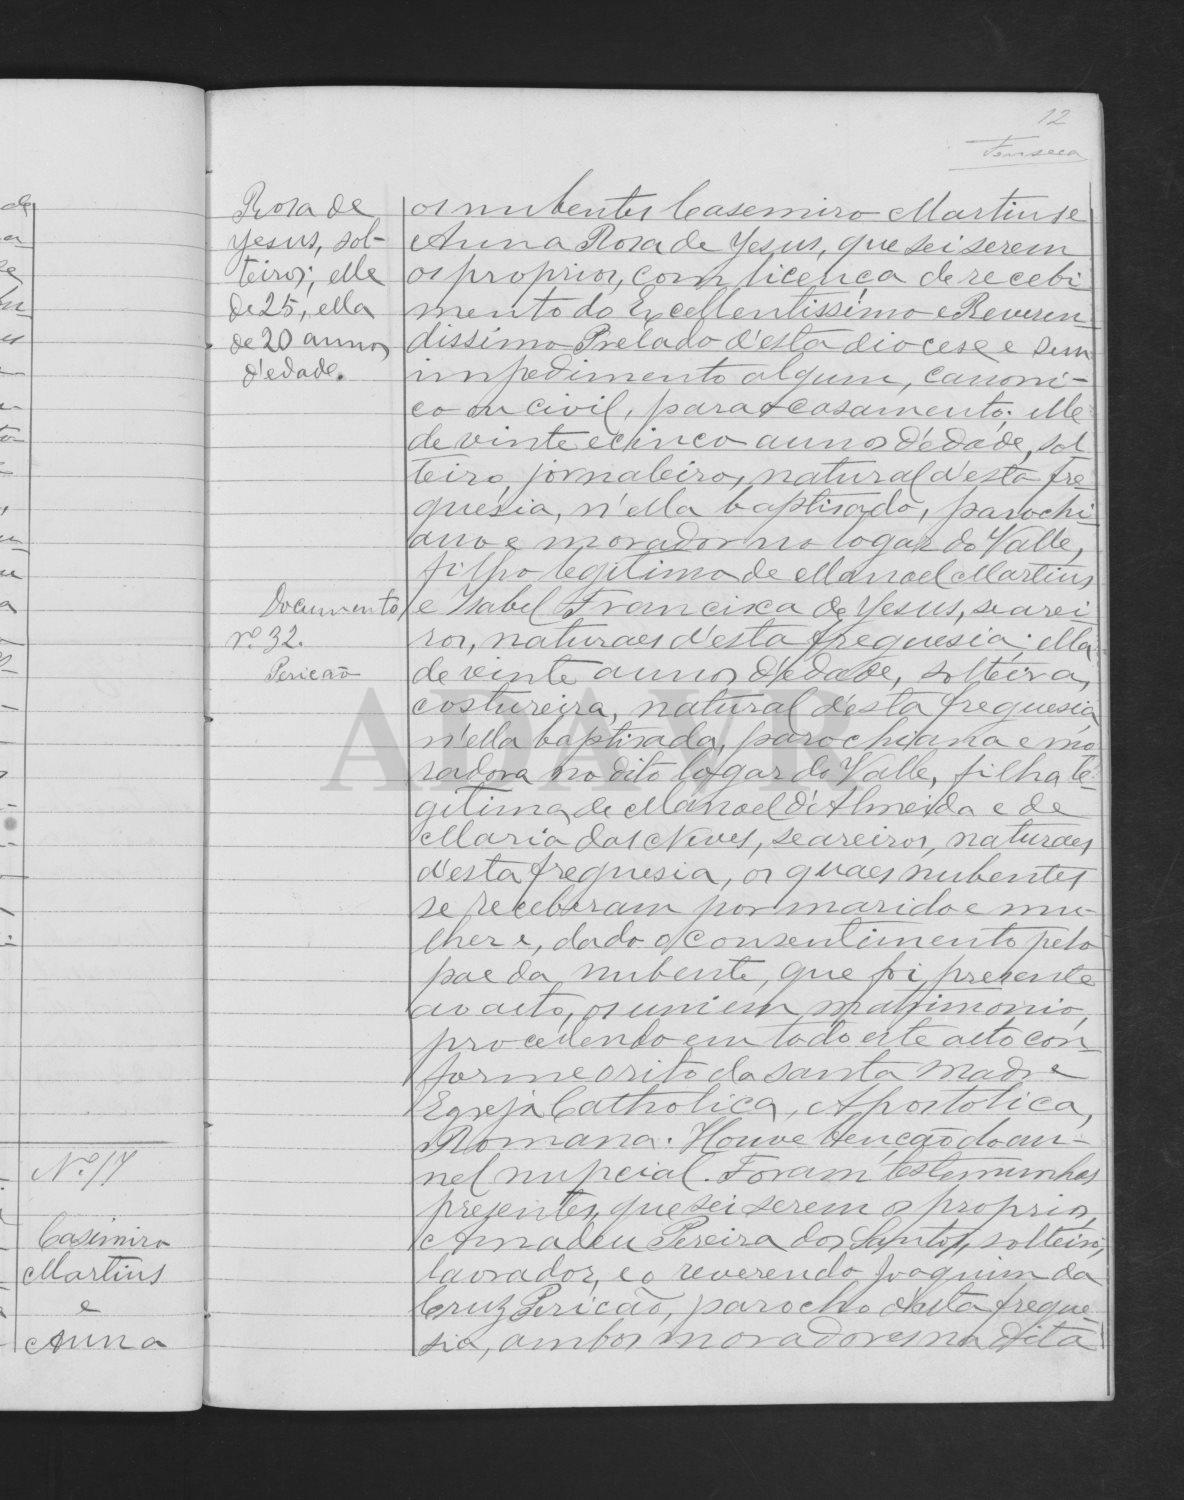 12
Fonseca
Rosa de
Yesus, sol-
teiros; elle
de 25, ella
de 20 annos
d'edade.
Documento
nº 32.
Pericão
os nubentes Casemiro Martins e
Anna Rosa de Yesus, que sei serem
os proprios, com licença de recebi-
mento do Excellentissimo e Reveren-
dissimo Prelado d'esta diocese e sem
impedimento algum, canoni-
co ou civil, para o casamento; elle
de vinte e cinco annos d'edade, sol-
teiro, jornaleiro, natural d'esta fre-
guesia, n'ella baptisado, parochi-
ano e morador no logar do Valle,
filho legitimo de Manoel Martins
e Isabel Francisca de Yesus, searei-
ros, naturaes d'esta freguesia; ella
de vinte annos d'edade, solteira,
costureira, natural d'esta freguesia
n'ella baptisada, parochiana e mo-
radora no dito logar do Valle, filha le-
gitima de Manoel d'Almeida e de
Maria das Neves, seareiros, naturaes
d'esta freguesia, os quaes nubentes
se receberam por marido e mu-
lher e, dado o consentimento pelo
pae da nubente, que foi presente
ao acto, os uni em matrimonio,
procedendo em todo este acto con-
forme o rito da santa madre
Egreja Catholica, Apostolica,
Romana. Houve benção do an-
nel nupcial. Foram testemunhas
presentes, que sei serem os proprios,
Amadeu Pereira dos Santos, solteiro,
lavrador, e o reverendo Joaquim da
Cruz Pericão, parocho d'esta fregue-
sia, ambos moradores na dita
Nº 17
Casimiro
Martins
e
Anna
ADAVR